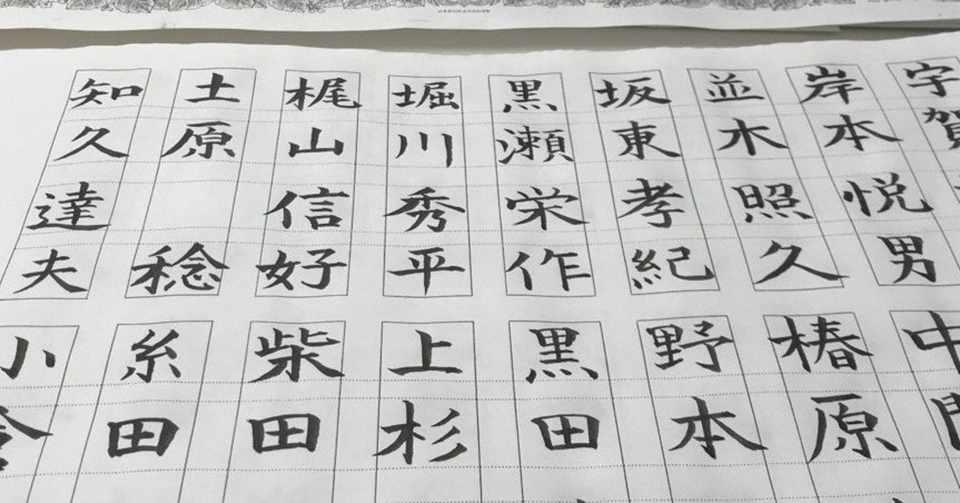 宇賀
岸本悦男
並木照久
坂東孝紀
黒瀬栄作
堀川秀平
梶山信好
土原稔
知久達夫
中
椿原
野本
黒田
上杉
柴田
糸田
小